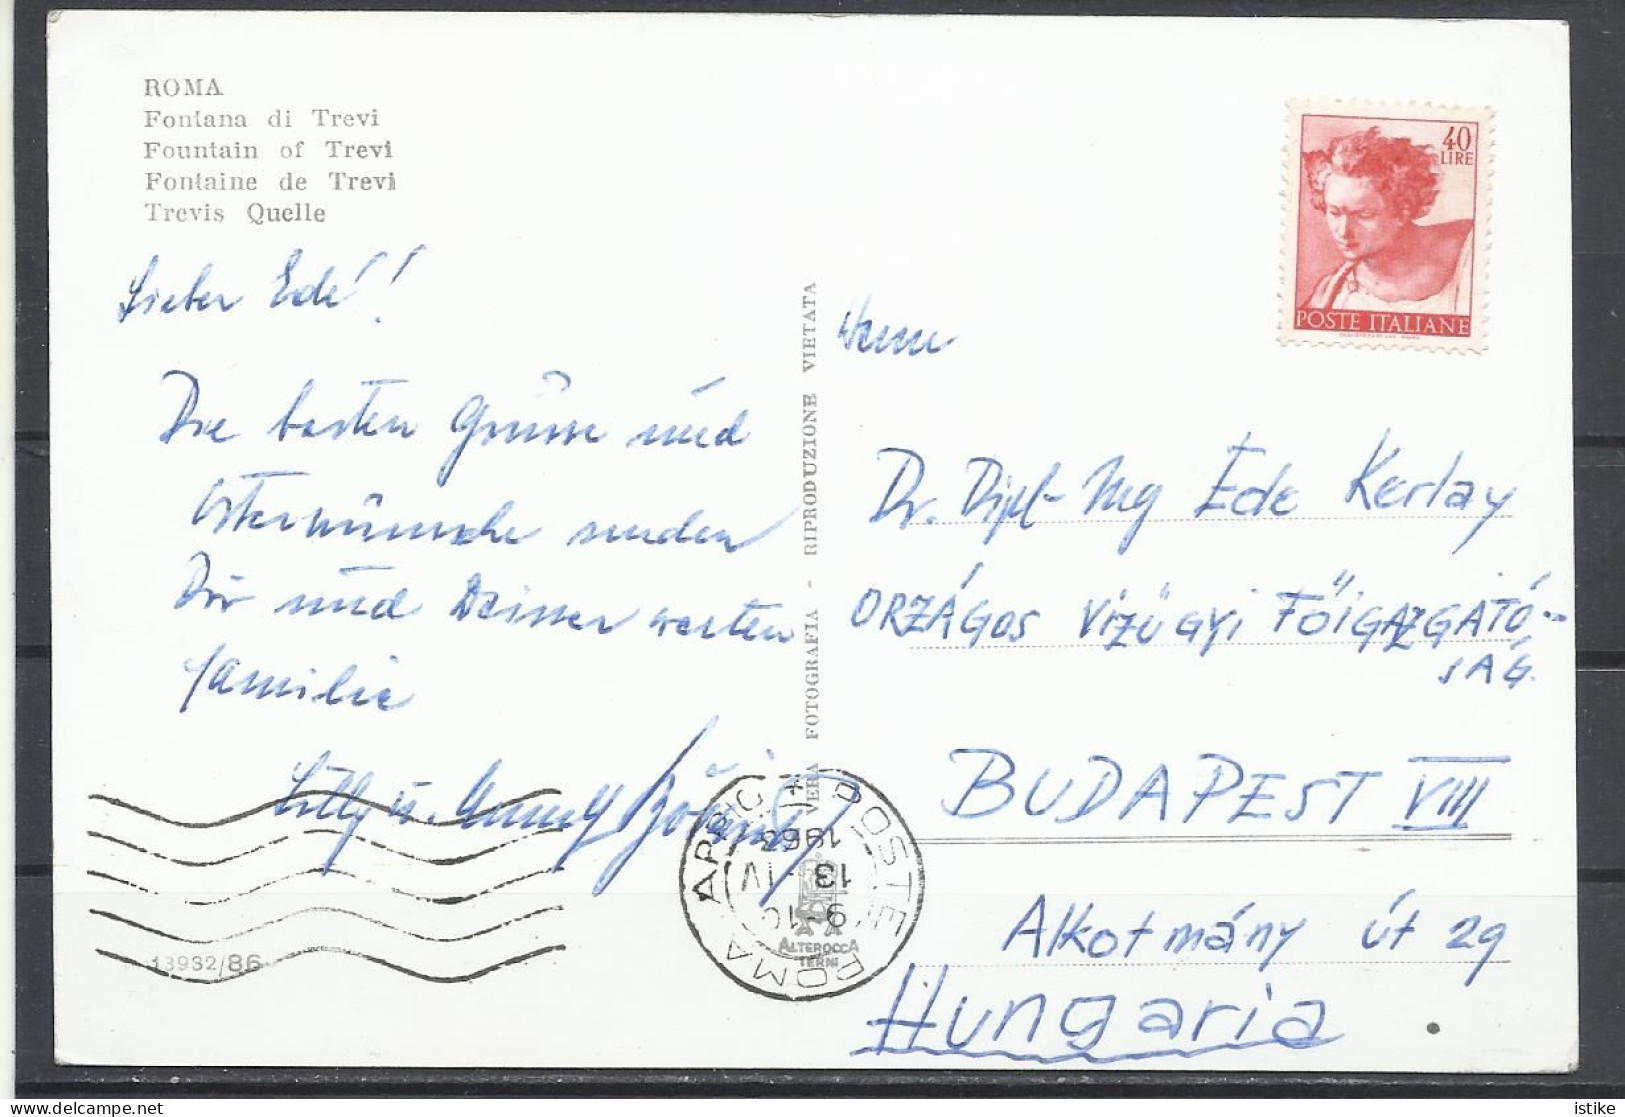 ROMA
Fontana di Trevi
Fountain of Trevi
Fontaine de Trevi
Trevis Quelle
Lieber Ede!
Die besten Grüsse und
Osterwünsche senden
Dir und Deiner werten
Familie
Lilly u.
VERA FOTOGRAFIA - RIPRODUZIONE VIETATA
40
LIRE
POSTE ITALIANE
Herrn
Dr. Dipl-Ing Ede Kerlay
ORSZÁGOS VIZÜGYI FŐIGAZGATÓ-
SÁG.
BUDAPEST VIII
Alkotmány út 29
Hungaria
POSTE ROMA
9-10
13 IV
1963
ALTEROCCA
TERNI
13932/86
www.delcampe.net
istike